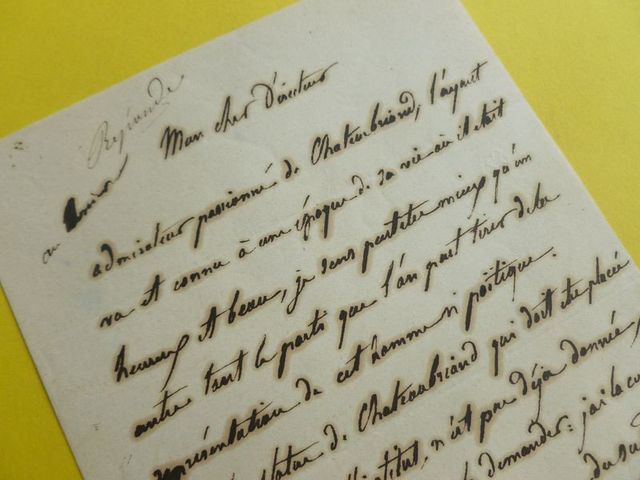 Répondu
Mon cher Directeur
admirateur passionné de Chateaubriand, l'ayant
vu et connu à une époque de sa vie où il était
heureux et beau, je sens peut etre mieux qu'un
autre tout le parti que l'on peut tirer de la
représentation de cet homme si poëtique.
statue de Chateaubriand qui doit etre placée
l'institut, n'est pas déjà donnée,
demander: j'ai la
du